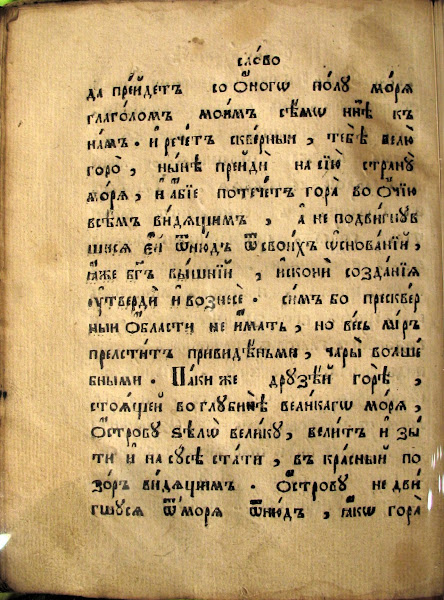 сло́во
да пре́йдетъ со ѻ҆́ногѡ по́лу мо́ря
глаго́ломъ мои́мъ сѣ́мѡ нн҃ѣ къ
на́мъ. и҆ рече́тъ скве́рныи, тебѣ̀ велю̀
горо̀, ны́нѣ прейдѝ на сїю̀ страну̀
мо́ря, и҆ а҆́бїе потече́тъ гора̀ во ѻ҆́чїю
всѣ́мъ ви́дящимъ, а҆ не подви́гнув
шися є҆́й ѿню́дъ ѿ свои́хъ ѡ҆снова́нїй,
ꙗ҆́же бг҃ъ вы́шнїй, и҆сконѝ созда́нїя
ᲂу҆твердѝ и҆ вознесѐ. си́мъ бо прескве́р
ныи ѻ҆́бласти не и҆́мать, но ве́сь мі́ръ
прелсти́тъ привидѣ́ньми, чары̀ волше́
бными. Па́ки же друзѣ́й горѣ̀,
стоя́щей во глубинѣ̀ вели́кагѡ мо́ря,
ѻ҆́строву ѕѣлѡ̀ вели́ку, вели́тъ и҆зы́
ти и҆ на су́сѣ ста́ти, въ кра́сный по
зо́ръ ви́дящимъ. ѻ҆́строву не дви́
гшуся ѿ мо́ря ѿню́дъ, ꙗ҆́кѡ гора̀